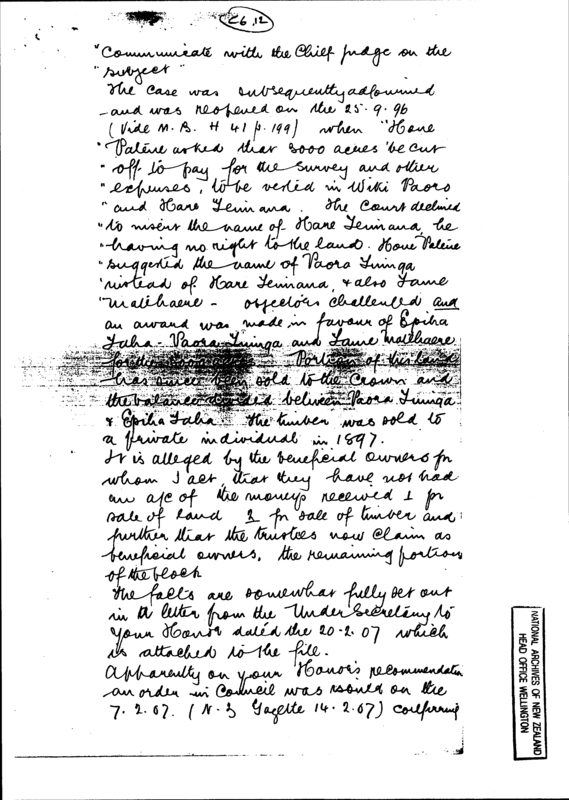 26.12
"Communicate with the Chief Judge on the
"subject"
The case was subsequently adjourned
and was reopened on the 25.9.96
(Vide M.B. H 41 p.199) when "Hone
"Patene asked that 3000 acres be cut
"off to pay for the survey and other
"expenses, to be vested in Wiki Paora
"and Hare Teimana. The Court declined
"to insert the name of Hare Teimana, he
"having no right to the land. Hone Patene
"suggested the name of Paora Tuinga
"instead of Hare Teimana, & also Tame
"Matehaere - objectors challenged and
an award was made in favour of Epiha
Taha - Paora Tuinga and Tame Matehaere
for the 3000 acres. Portion of this land
has since been sold to the Crown and
the balance divided between Paora Tuinga
& Epiha Taha. The timber was sold to
a private individual in 1897.
It is alleged by the beneficial owners for
whom I act, that they have not had
an a/c of the moneys received 1 for
sale of land 2 for sale of timber and
further that the trustees now claim as
beneficial owners, the remaining portion
of the block
The facts are somewhat fully set out
in a letter from the Under Secretary to
your Honor dated the 20-2.07 which
is attached to the file.
Apparently on your Honor's recommendation
an order in Council was issued on the
7.2.07. (N.Z Gazette 14.2.07) conferring
NATIONAL ARCHIVES OF NEW ZEALAND
HEAD OFFICE WELLINGTON